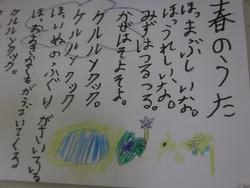 春のうた
ほっまぶしいな。
ほっうれしいな。
みずはつるつる。
かぜはそよそよ。
ケルルンクック。
ケルルンクック
ほっいぬのふぐりがさいている
ほっおおきなくもがうごいてくる
ケルルンクック。